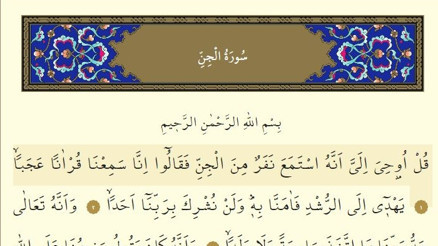 سُورَةُ الْجِنِّ
بِسْمِ اللهِ الرَّحْمٰنِ الرَّح۪يمِ
قُلْ اُو۫حِيَ اِلَيَّ اَنَّهُ اسْتَمَعَ نَفَرٌ مِنَ الْجِنِّ فَقَالُٓوا اِنَّا سَمِعْنَا قُرْاٰنًا عَجَبًاۙ
١ يَهْد۪ٓي اِلَى الرُّشْدِ فَاٰمَنَّا بِه۪ۜ وَلَنْ نُشْرِكَ بِرَبِّنَٓا اَحَدًاۙ ٢ وَاَنَّهُ تَعَالٰى